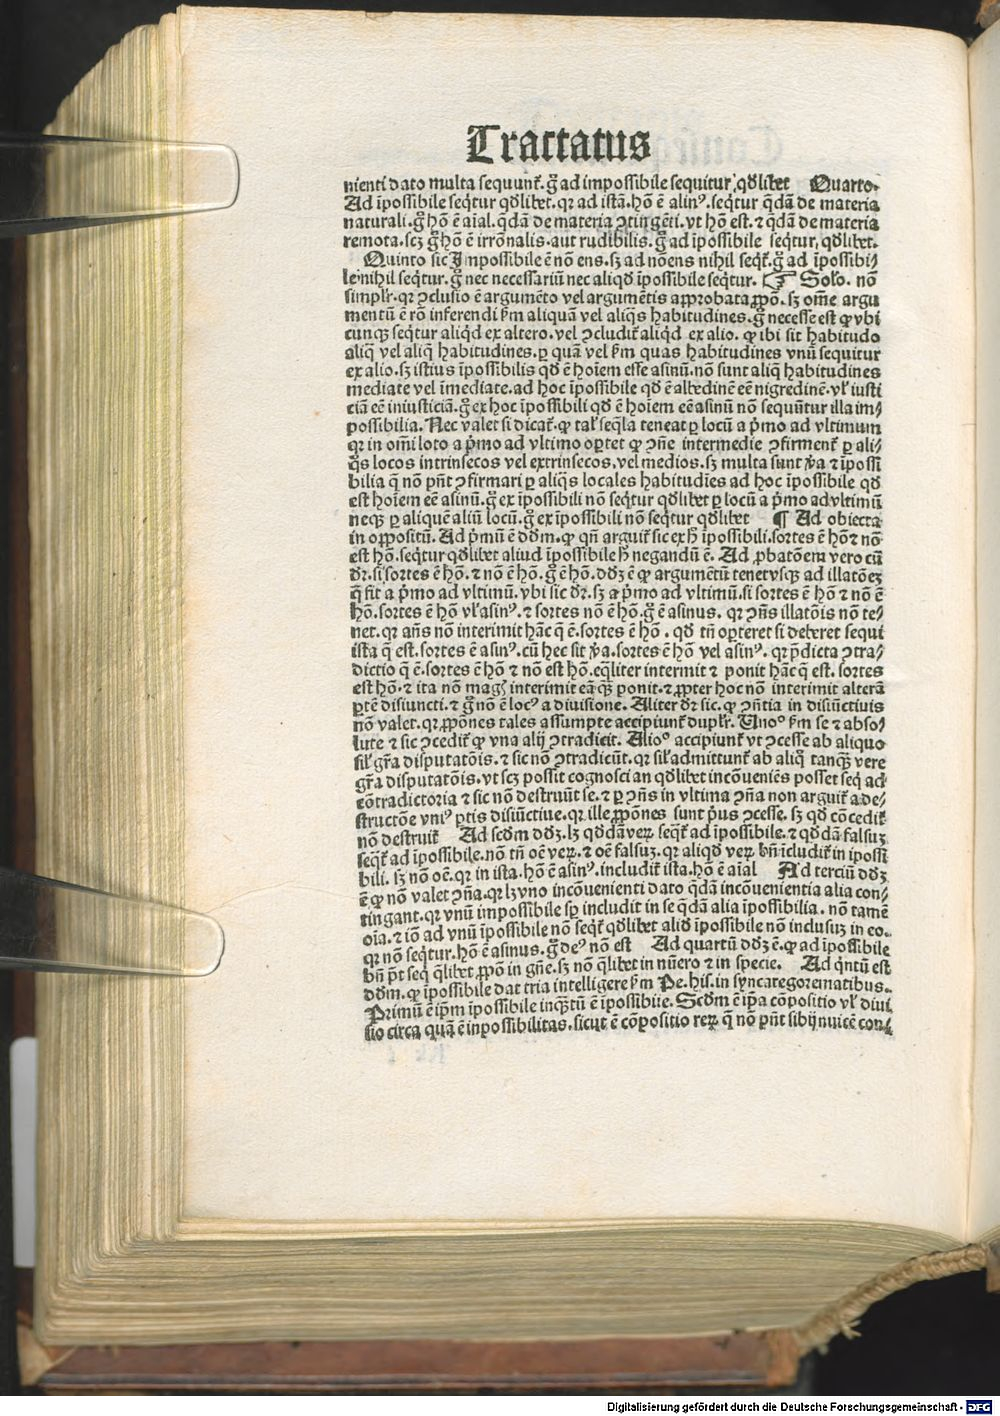 Tractatus
nienti dato multa sequunt̄. g̊ ad impossibile sequitur qđlibet Quarto.
Ad īpossibile seq̄tur qđlibet. qꝛ ad istā. hō ē alinꝰ. seq̄tur q̄dā de materia
naturali. g̊ hō ē aīal. q̄dā de materia ꝯtingēti. vt hō est. ⁊ q̄dā de materia
remota. scꝫ g̊ hō ē irrōnalis. aut rudibilis. g̊ ad īpossibile seq̄tur qđlibet.
Quinto sic Impossibile ē nō ens. sꝫ ad nōens nihil seq̄t̄. g̊ ad īpossibi⸗
le nihil seq̄tur. g̊ nec necessariū nec aliqđ īpossibile seq̄tur. ☞ Solo. nō
simplr̄. qꝛ ꝯclusio ē argumēto vel argumētis approbata ꝓpō. sꝫ om̄e argu
mentū ē rō inferendi ẜm aliquā vel aliq̄s habitudines. g̊ necesse est ꝙ vbi
cunqꝫ seq̄tur aliqđ ex altero. vel ꝯcludit̄ aliqđ ex alio. ꝙ ibi sit habitudo
aliq̄ vel aliq̄ habitudines. ꝑ quā vel ẜm quas habitudines vnū sequitur
ex alio. sꝫ istius īpossibilis qđ ē hoīem esse asinū. nō sunt aliq̄ habitudines
mediate vel īmediate. ad hoc īpossibile qđ ē albedinē eē nigredinē. vl̓ iusti
ciā eē iniusticiā. g̊ ex hoc īpossibili qđ ē hoīem eē asinū nō sequūtur illa im⸗
possibilia. Nec valet si dicat̄. ꝙ tal̓ seq̄la teneat ꝑ locū a p̄mo ad vltimum
qꝛ in om̄i loto a p̄mo ad vltimo oꝑtet ꝙ ꝯn̄e intermedie ꝯfirment̄ ꝑ ali⸗
q̊s locos intrinsecos vel extrinsecos, vel medios. sꝫ multa sunt ꝟa ⁊ īpossi
bilia q̄ nō pn̄t ꝯfirmari ꝑ aliq̊s locales habitudīes ad hoc īpossibile qđ
est hoīem eē asinū. g̊ ex īpossibili nō seq̄tur qđlibet ꝑ locū a p̄mo ad vltimū
neqꝫ ꝑ aliquē aliū locū. g̊ ex īpossibili nō seq̄tur qđlibet ¶ Ad obiecta
in oppositū. Ad p̄mū ē dđm. ꝙ qn̄ arguit̄ sic ex ħ īpossibili. sortes ē hō ⁊ nō
est hō. seq̄tur qđlibet aliud īpossibile ħ negandū ē. Ad ꝓbatōem vero cū
dr̄. si sortes ē hō. ⁊ nō ē hō. g̊ ē hō. ddꝫ ē ꝙ argumētū tenet vsqꝫ ad illatōeꝫ
q̄ fit a p̄mo ad vltimū. vbi sic dr̄. sꝫ a p̄mo ad vltimū. si sortes ē hō ⁊ nō ē
hō. sortes ē hō vl̓ asinꝰ. ⁊ sortes nō ē hō. g̊ ē asinus. qꝛ ꝯn̄s illatōis nō te⸗
net. qꝛ an̄s nō interimit hāc q̄ ē. sortes ē hō. qđ tn̄ oꝑteret si deberet sequi
ista q̄ est. sortes ē asinꝰ. cū hec sit ꝟa. sortes ē hō vel asinꝰ. qꝛ p̄dicta ꝯtra⸗
dictio q̄ ē. sortes ē hō ⁊ nō est hō. eq̄liter intermit ⁊ ponit hāc q̄ est. sortes
est hō. ⁊ ita nō mag̓ interimit eā qꝫ ponit. ⁊ ꝓpter hoc nō interimit alterā
ꝑtē disiuncti. ⁊ g̊ nō ē locꝰ a diuisione. Aliter dr̄ sic. ꝙ ꝯn̄tia in disiūctiuis
nō valet. qꝛ ꝓpōnes tales assumpte accipiunt̄ duplr̄. Unoꝰ ẜm se ⁊ abso⸗
lute ⁊ sic ꝯcedit̄ ꝙ vna alij ꝯtradicit. Alioꝰ accipiunt̄ vt ꝯcesse ab aliquo
sil̓ gr̄a disputatōis. ⁊ sic nō ꝯtradicūt. qꝛ sil̓ admittunt̄ ab aliq̊ tanqꝫ vere
gr̄a disputatōis. vt scꝫ possit cognosci an qđlibet incōueniēs posset seq̄ ad
cōtradictoria ⁊ sic nō destruūt se. ⁊ ꝑ ꝯn̄s in vltima ꝯn̄a non arguit̄ a de⸗
structōe vniꝰ ꝑtis disiūctiue. qꝛ ille ꝓpōnes sunt p̄us ꝯcesse. sꝫ qđ cōcedit̄
nō destruit̄ Ad scđm ddꝫ. lꝫ qđdā veꝝ seq̄t̄ ad īpossibile. ⁊ qđdā falsuꝫ
seq̄t̄ ad īpossibile. nō tn̄ oē veꝝ. ⁊ oē falsuꝫ. qꝛ aliqđ veꝝ bn̄ īcludit̄ in īpossi
bili. sꝫ nō oē. qꝛ in ista. hō ē asinꝰ. includit̄ ista. hō ē aīal Ad terciū ddꝫ
ē ꝙ nō valet ꝯn̄a. qꝛ lꝫ vno incōuenienti dato q̄dā incōuenientia alia con⸗
tingant. qꝛ vnū impossibile sꝑ includit in se q̄dā alia īpossibilia. nō tamē
oīa. ⁊ iō ad vnū īpossibile nō seq̄t̄ qđlibet aliđ īpossibile nō inclusuꝫ in eo.
qꝛ nō seq̄tur. hō ē asinus. g̊ deꝰ nō est Ad quartū ddꝫ ē. ꝙ ad īpossibile
bn̄ pt̄ seq̄ q̄libet ꝓpō in gn̄e. sꝫ nō q̄libet in nūero ⁊ in specie. Ad q̄ntū est
dđm. ꝙ īpossibile dat tria intelligere ẜm Pe. his. in syncategorematibus.
Primū ē ip̄m īpossibile inq̄ꝫtū ē īpossibiie. Scđm ē ip̄a cōpositio vl̓ diui
sio circa quā ē inpossibilitas. sicut ē cōpositio reꝝ q̄ nō pn̄t sibijnuicē con⸗
Digitalisierung gefördert durch die Deutsche Forschungsgemeinschaft - DFG